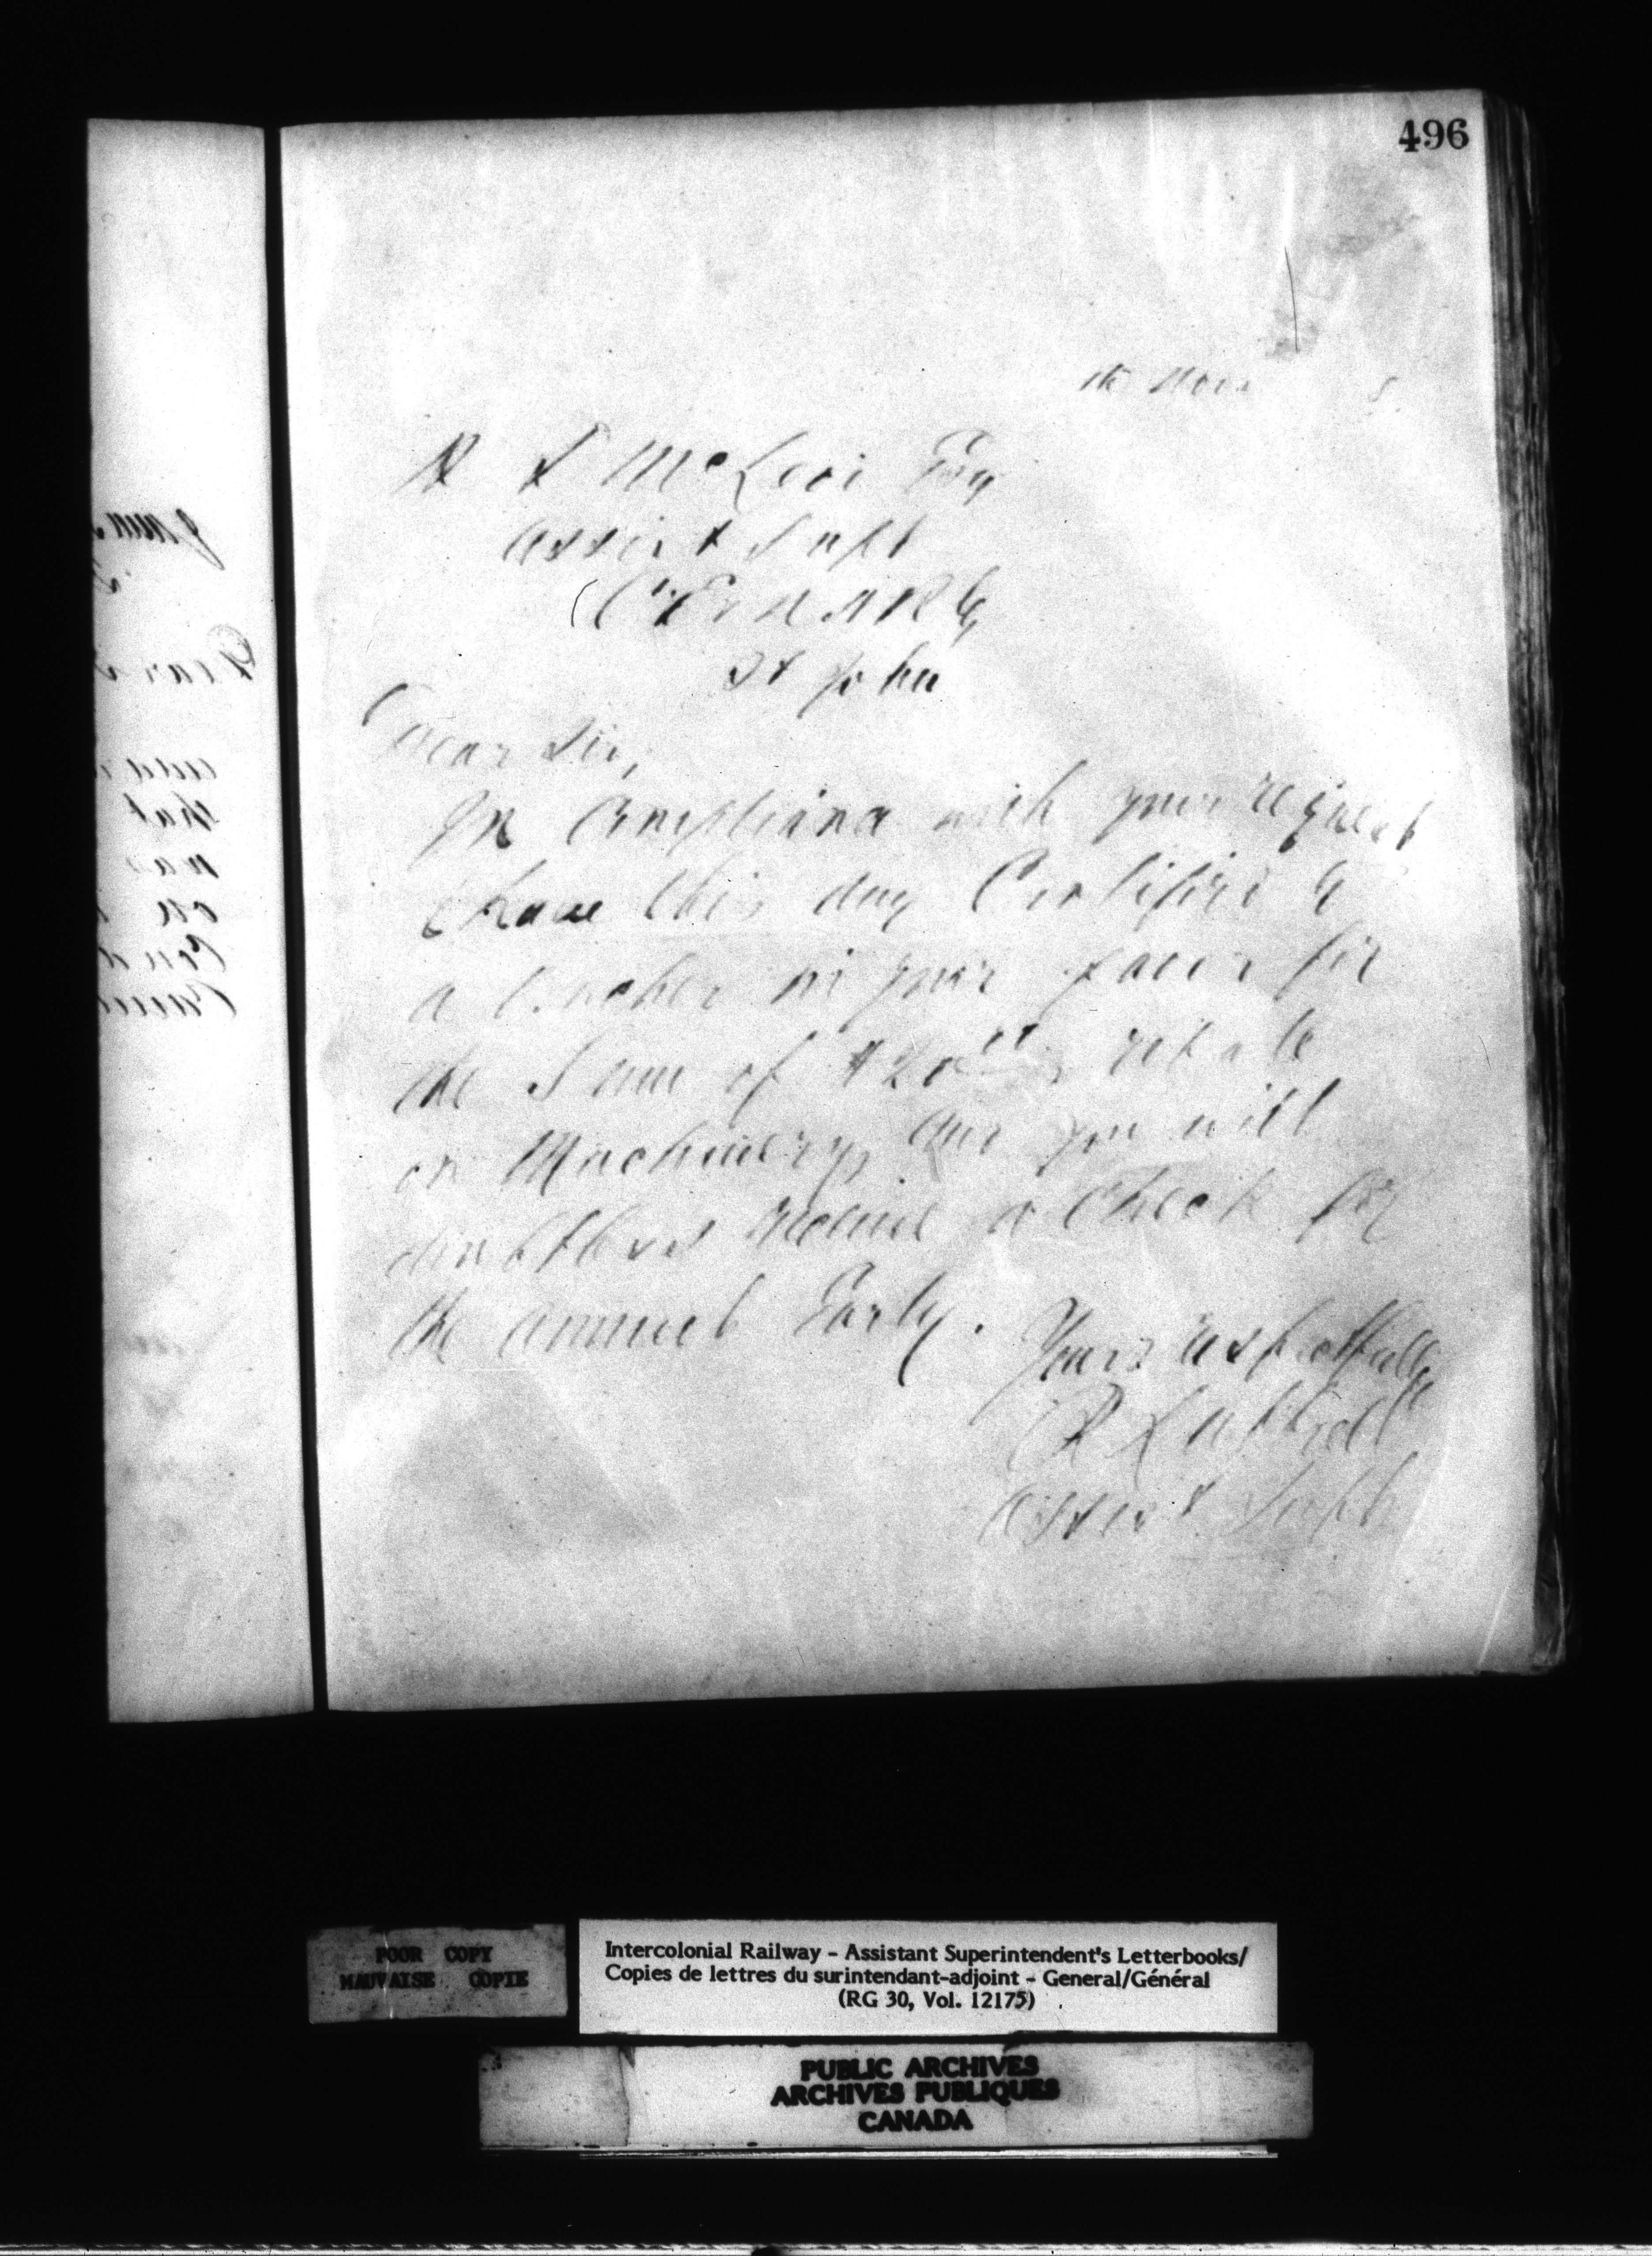 496
Nov
McLeod Esq
Assist Supt
St John
Dear Sir,
In Compliance with your request
I have this day Certified to
a Voucher in your favor for
the Sum of $20 rebate
on Machinery, and you will
doubtless receive a Check for
the amount Early.
Yours respectfully
R Luttrell
Assist Supt
POOR COPY
MAUVAISE COPIE
Intercolonial Railway - Assistant Superintendent's Letterbooks/
Copies de lettres du surintendant-adjoint - General/Général
(RG 30, Vol. 12175)
PUBLIC ARCHIVES
ARCHIVES PUBLIQUES
CANADA